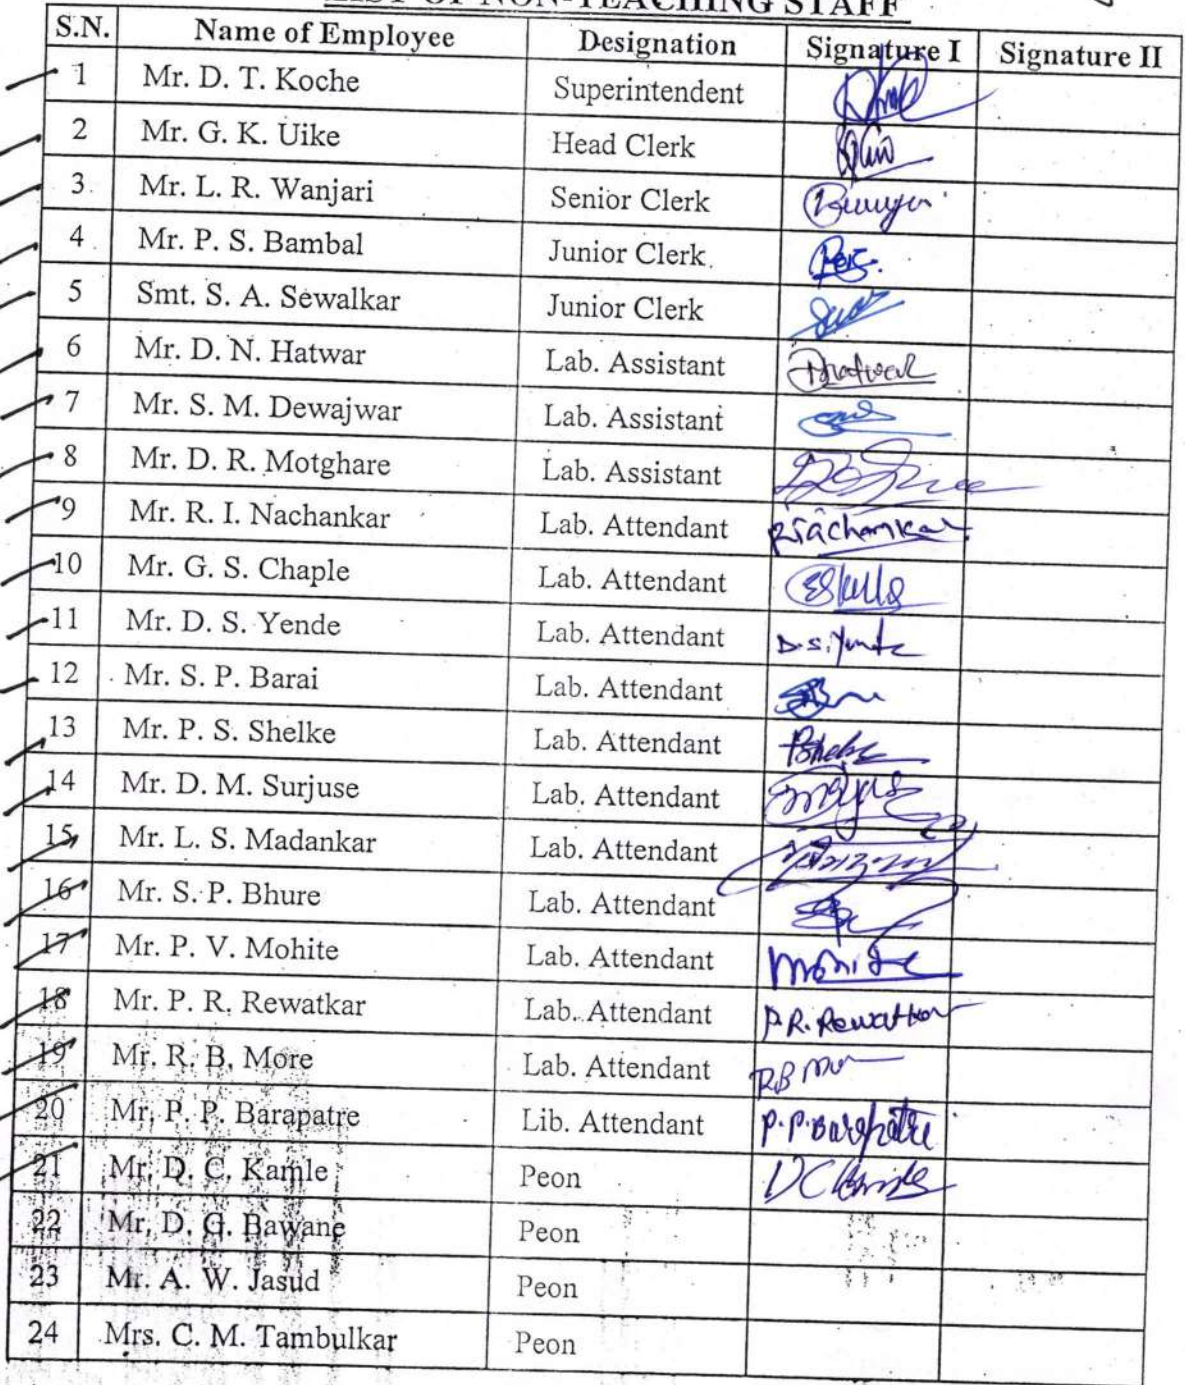 LIST OF NON-TEACHING STAFF
S.N. Name of Employee Designation Signature I Signature II
1 Mr. D. T. Koche Superintendent
2 Mr. G. K. Uike Head Clerk
3 Mr. L. R. Wanjari Senior Clerk
4 Mr. P. S. Bambal Junior Clerk
5 Smt. S. A. Sewalkar Junior Clerk
6 Mr. D. N. Hatwar Lab. Assistant
7 Mr. S. M. Dewajwar Lab. Assistant
8 Mr. D. R. Motghare Lab. Assistant
9 Mr. R. I. Nachankar Lab. Attendant
10 Mr. G. S. Chaple Lab. Attendant
11 Mr. D. S. Yende Lab. Attendant D.S. Yende
12 Mr. S. P. Barai Lab. Attendant
13 Mr. P. S. Shelke Lab. Attendant
14 Mr. D. M. Surjuse Lab. Attendant
15 Mr. L. S. Madankar Lab. Attendant
16 Mr. S. P. Bhure Lab. Attendant
17 Mr. P. V. Mohite Lab. Attendant
18 Mr. P. R. Rewatkar Lab. Attendant P.R. Rewatkar
19 Mr. R. B. More Lab. Attendant
20 Mr. P. P. Barapatre Lib. Attendant P.P. Barapatre
21 Mr. D. C. Kamle Peon
22 Mr. D. G. Bawane Peon
23 Mr. A. W. Jasud Peon
24 Mrs. C. M. Tambulkar Peon